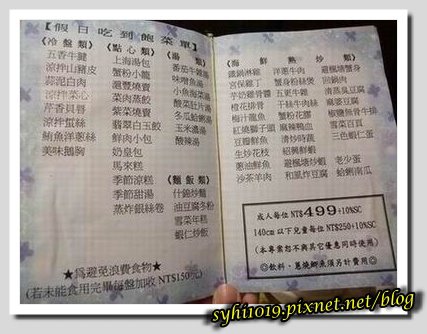 【假日吃到飽菜單】
(冷盤類)
五香牛腱
涼拌山豬皮
蒜泥白肉
涼拌菜心
芹香貝唇
涼拌蜇絲
鮪魚洋蔥絲
美味鵝胸
(點心類)
上海湯包
蟹粉小籠
滬蟹燒賣
菜肉蒸餃
紫菜燒賣
翡翠白玉餃
鮮肉小包
奶皇包
馬來糕
季節涼糕
季節甜湯
蒸炸銀絲卷
(湯類)
番茄牛雜湯
味噌魚湯
小魚鮮菇湯
酸菜肚片湯
冬瓜蛤蜊湯
玉米濃湯
酸辣湯
(麵飯類)
什錦炒麵
油豆腐冬粉
雪菜年糕
蝦仁炒飯
★為避免浪費食物★
(若未能食用完畢每盤加收 NT$150元)
(海鮮熱炒類)
鐵鍋淋雞
宮保雞丁
芋奶雞骨醬
橙花排骨
梅汁龍魚
紅燒獅子頭
豆瓣鮮魚
生炒花枝
蔥油鮮魚
沙茶羊肉
洋蔥牛肉
蟹身粉絲煲
五更牛雜
干絲牛肉絲
蟹粉豆腐
麻辣鴨血
清炒時蔬
紹興鮮蝦
避風塘炒蝦
和風炸豆腐
避風塘蟹身
回鍋肉
清蒸臭豆腐
麻婆豆腐
椒鹽無骨牛排
雪菜百頁
三色蝦仁蛋
老少蛋
蛤蜊南瓜
成人每位 NT$499+10%SC
140cm 以下兒童每位 NT$250+10%SC
(本專案恕不與其它優惠同時使用)
◎飲料、蔥燒鯽魚須另計費用◎
syhi1019.pixnet.net/blog